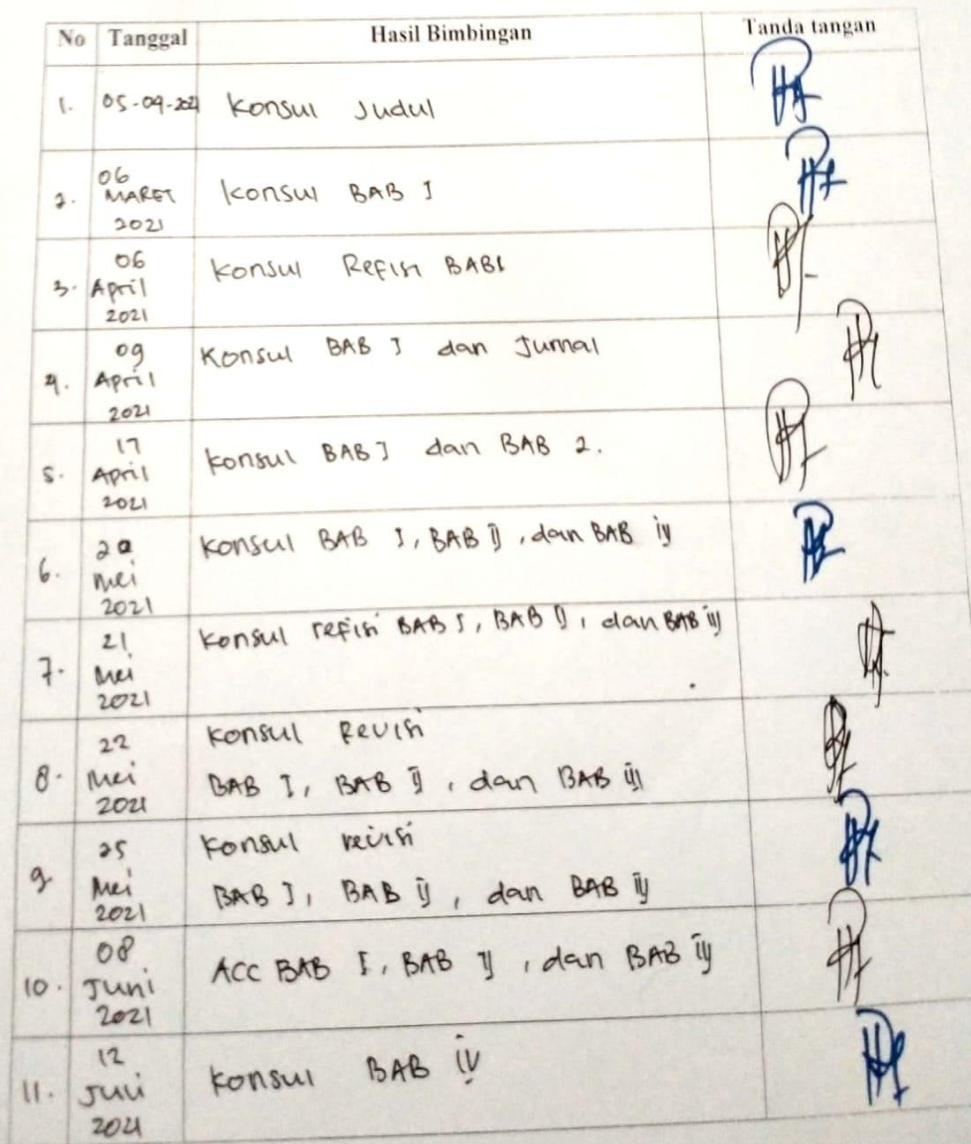 No Tanggal Hasil Bimbingan Tanda tangan
1. 05-09-2021 Konsul Judul
2. 06 MARET 2021 Konsul BAB I
3. 06 April 2021 Konsul Refisi BAB I
4. 09 April 2021 Konsul BAB I dan Jurnal
5. 17 April 2021 Konsul BAB I dan BAB 2.
6. 20 Mei 2021 Konsul BAB I, BAB II, dan BAB III
7. 21 Mei 2021 Konsul refisi BAB I, BAB II, dan BAB III
8. 22 Mei 2021 Konsul Revisi
BAB I, BAB II, dan BAB III
9. 25 Mei 2021 Konsul revisi
BAB I, BAB II, dan BAB III
10. 08 Juni 2021 ACC BAB I, BAB II, dan BAB III
11. 12 Juli 2021 Konsul BAB IV